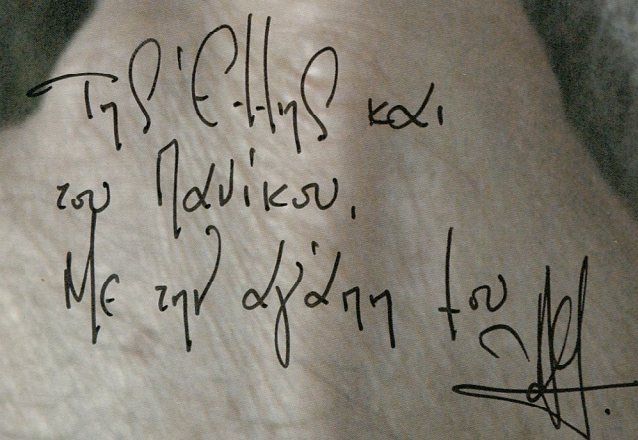 Της Έλλης και
του Πανίκου.
Με την αγάπη μου